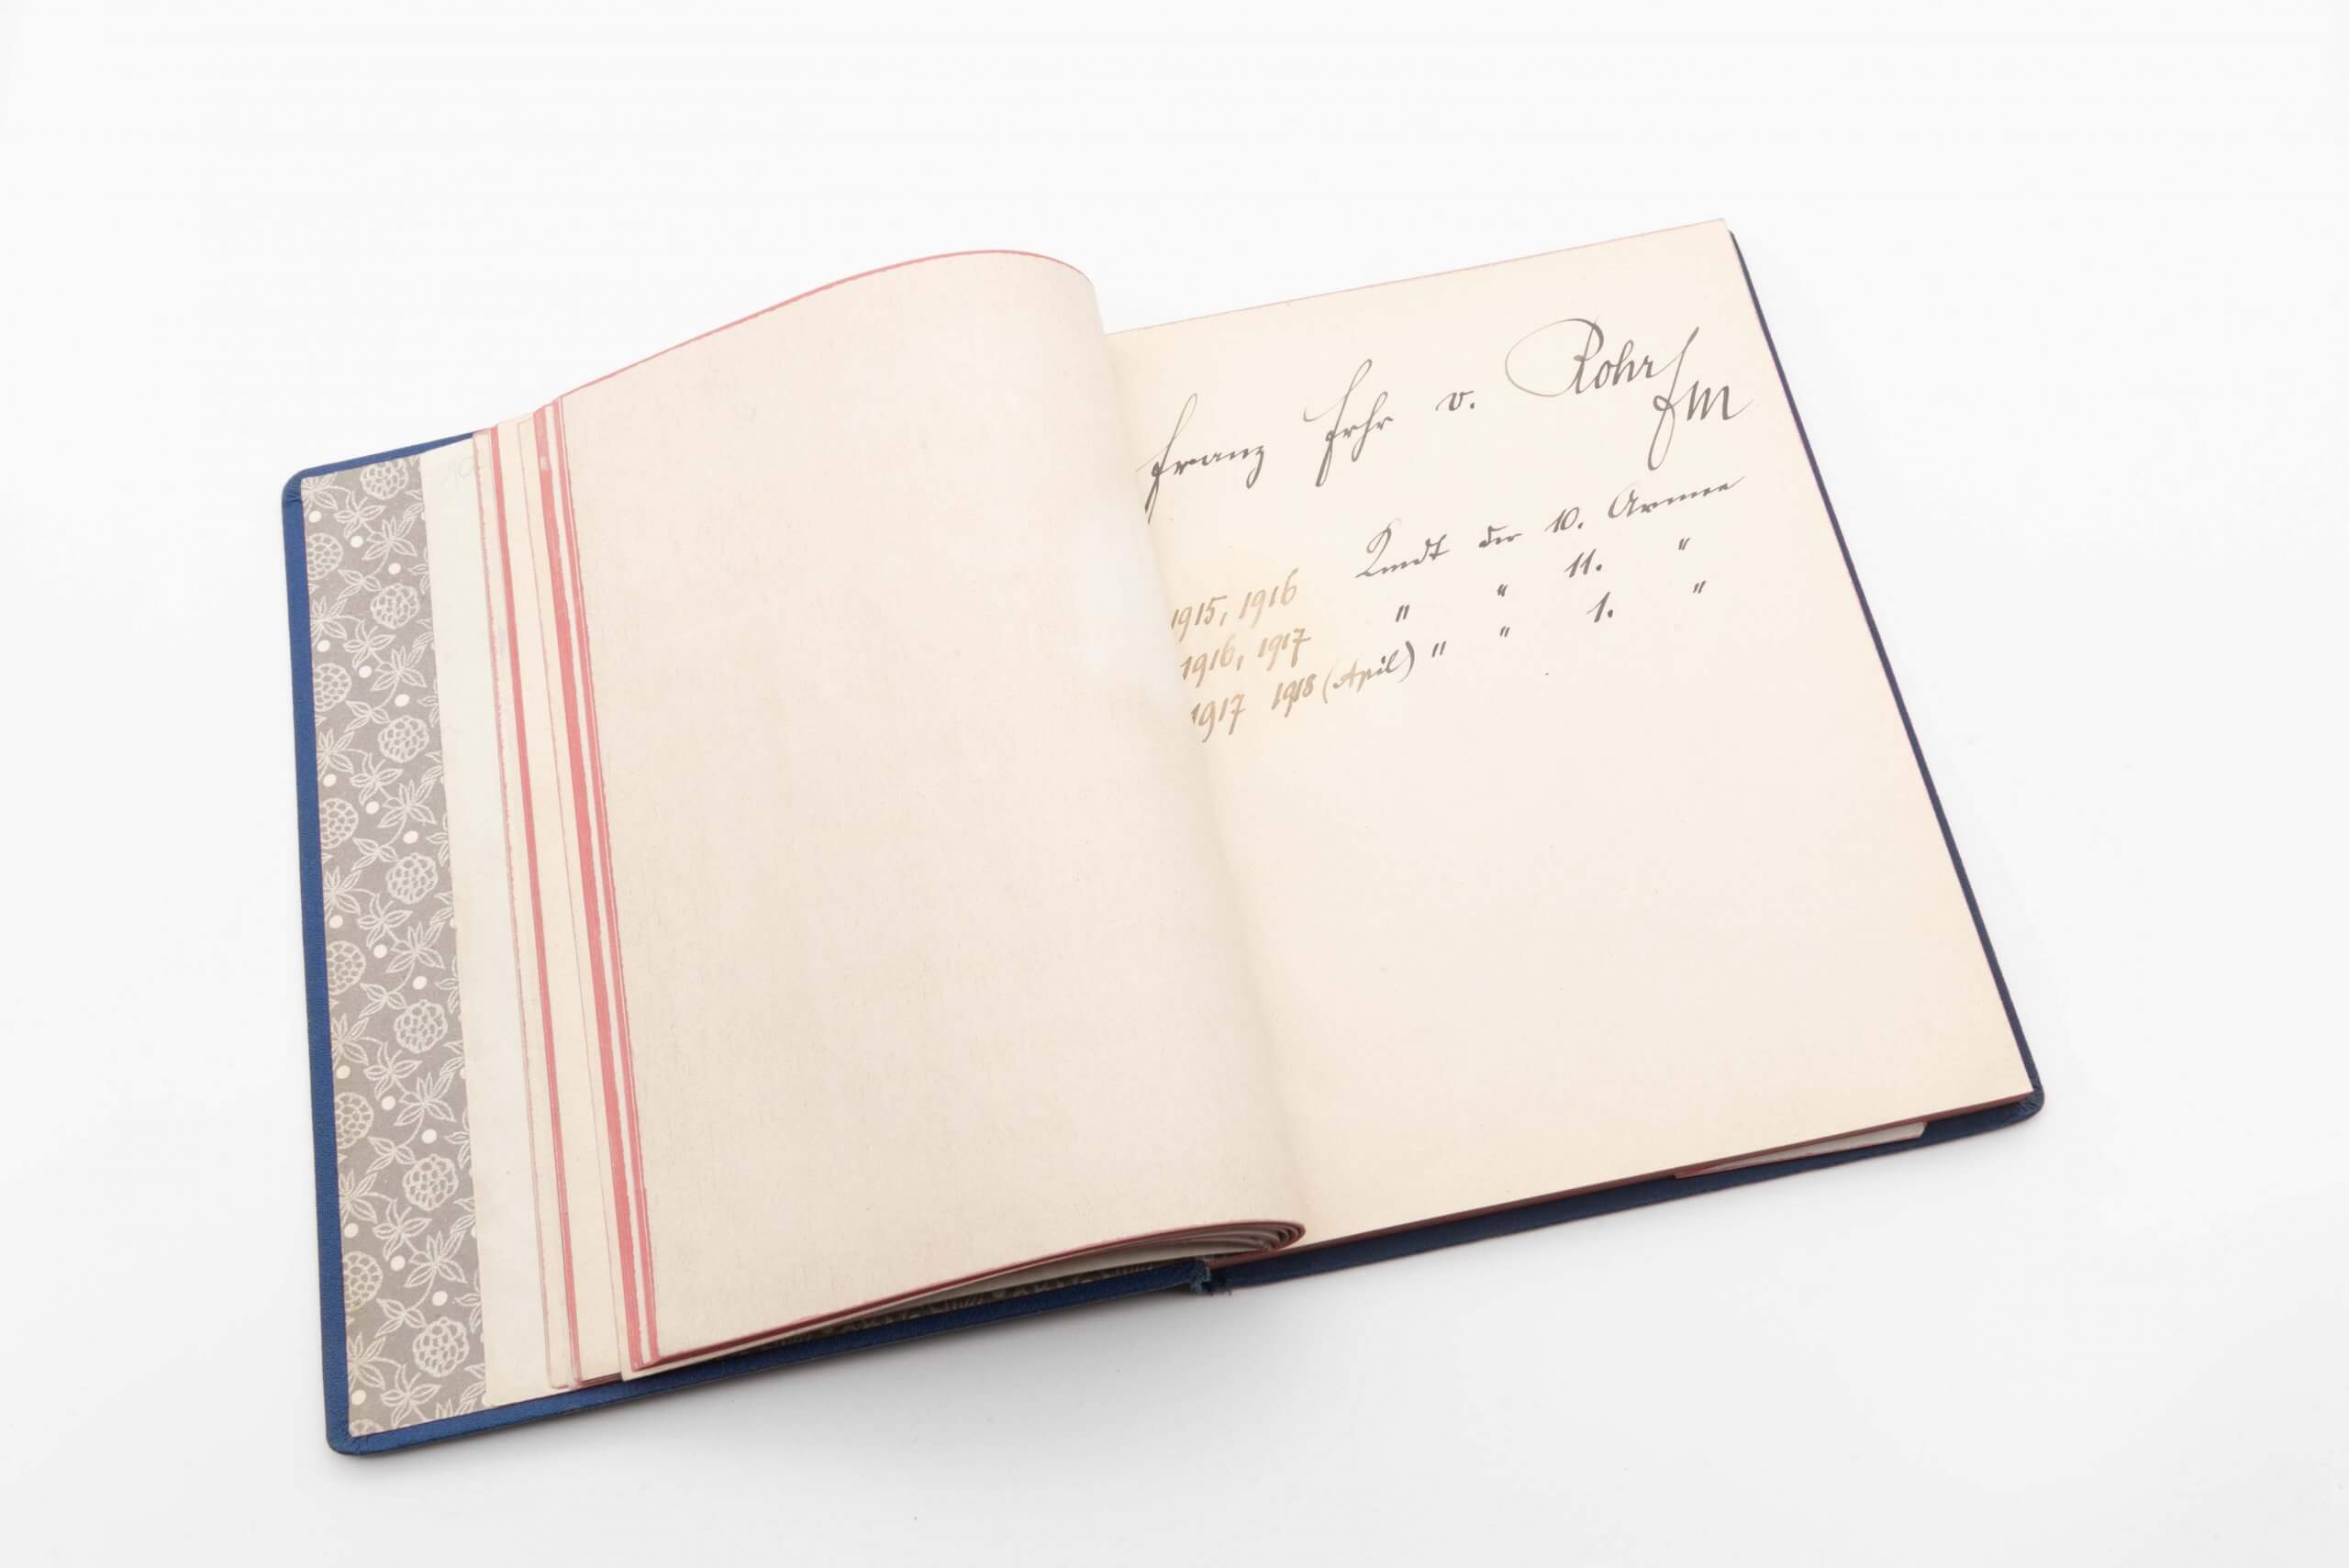 Franz Frhr v. Rohr
FM
1915, 1916 Kmdt der 10. Armee
1916, 1917 " " 11. "
1917 1918 (April) " " 1. "